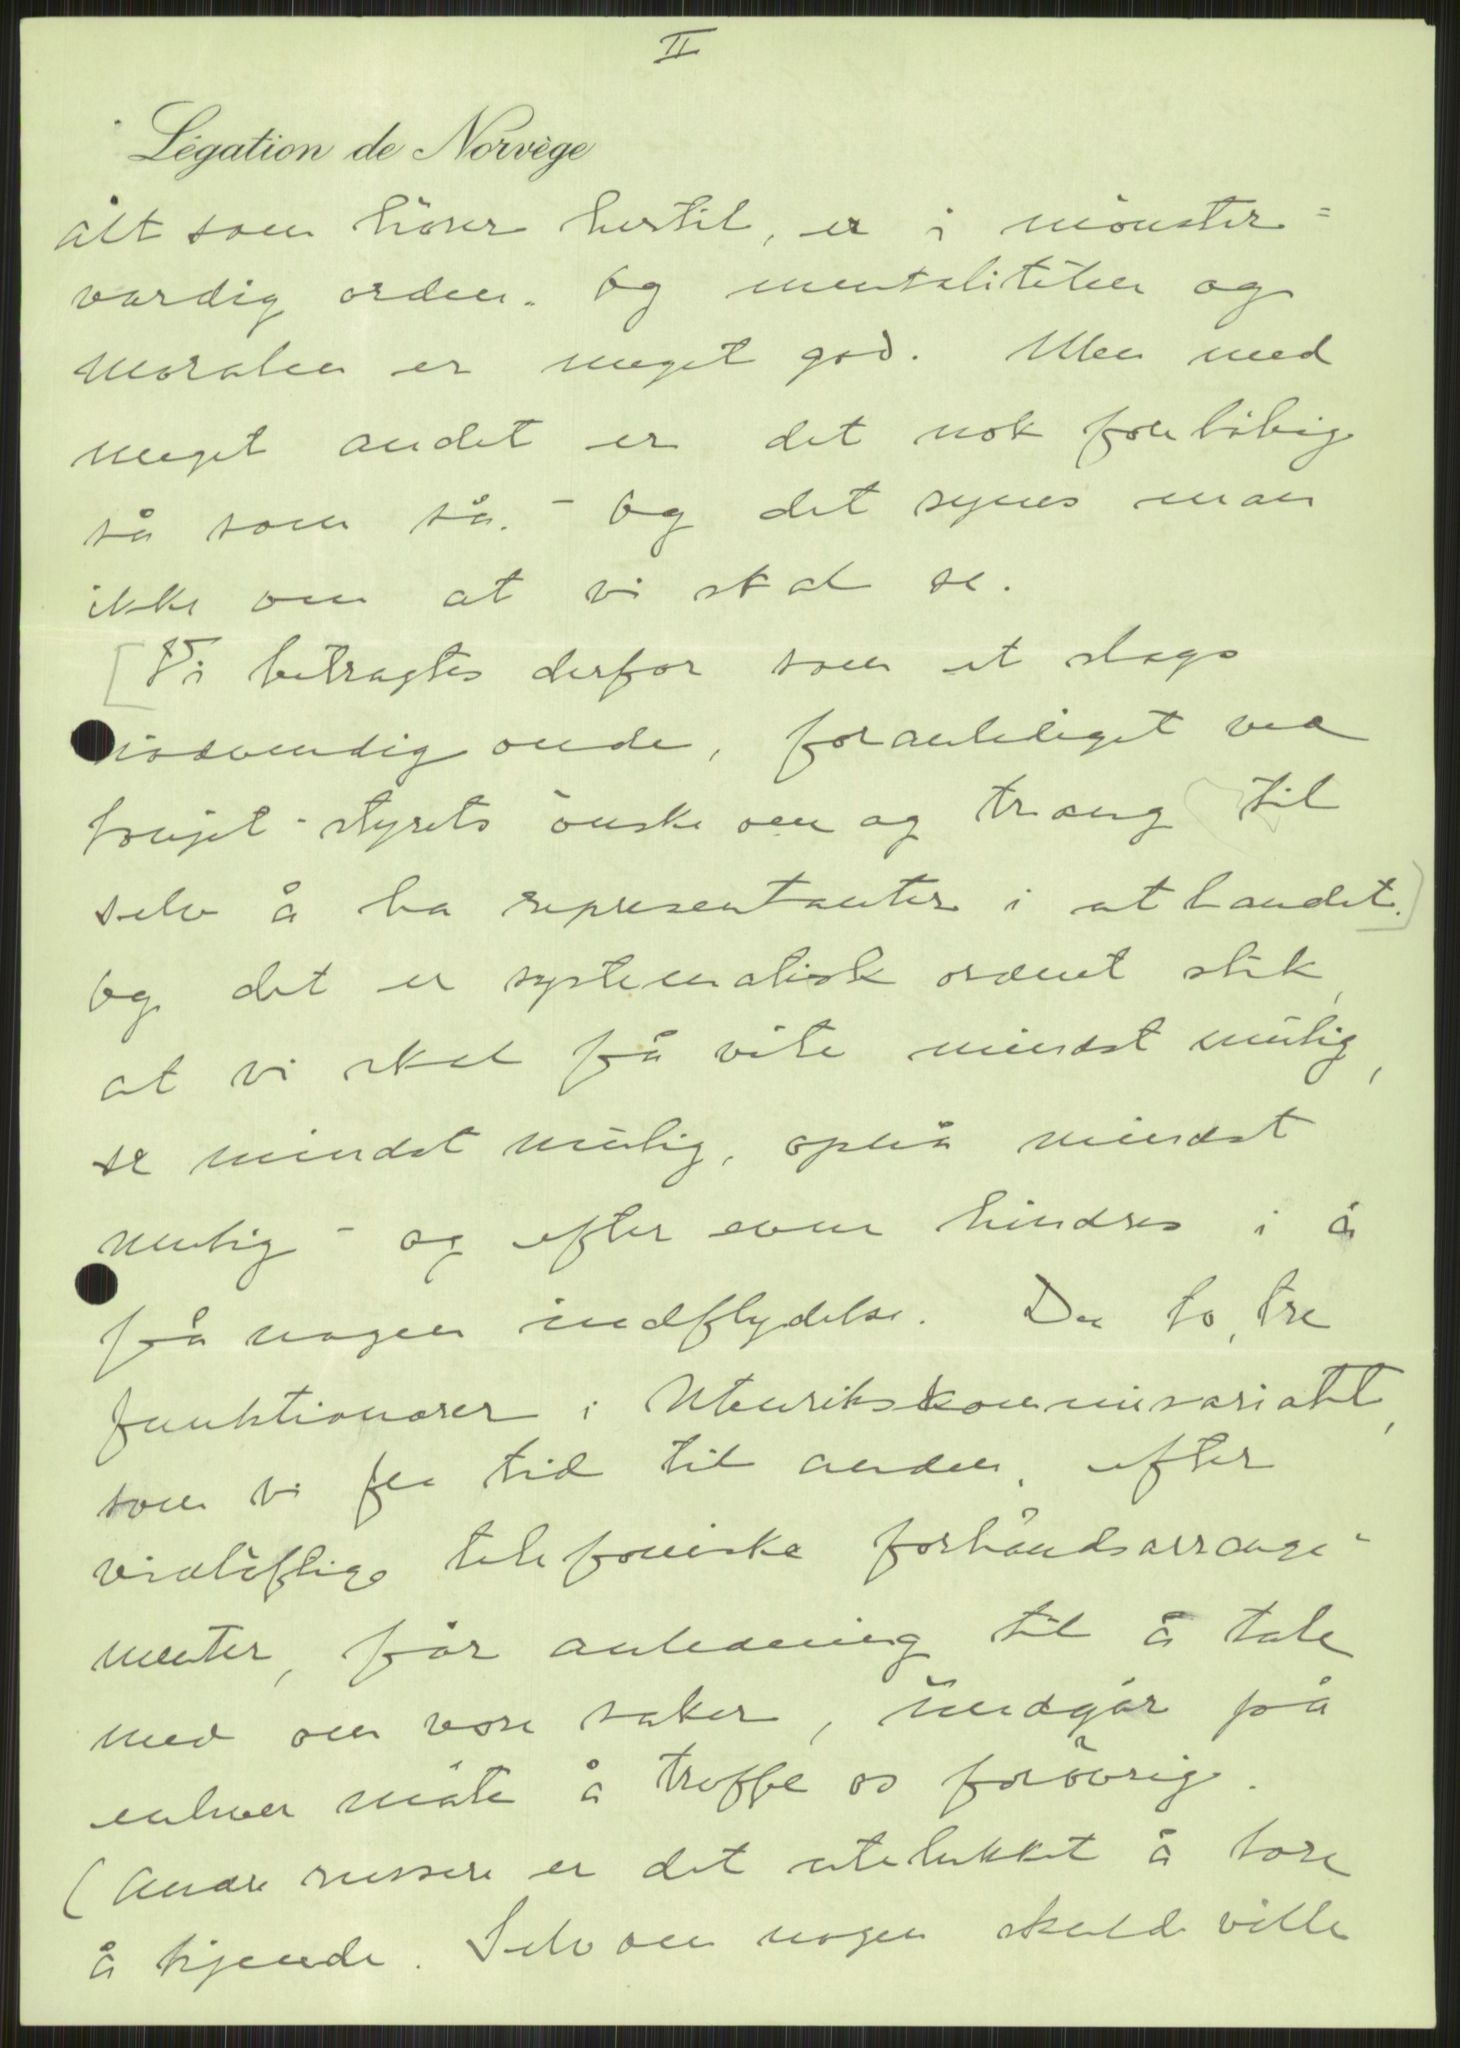 II
Légation de Norvège
alt som hörer hertil, er i mönster=
værdig orden. Og mentaliteten og
moralen er meget god. Men med
meget andet er det nok forelöbig
så som så. - Og det synes man
ikke om at vi skal se.
[Vi betragtes derfor som et slags
nödvendig onde, foranlediget ved
sovjet-styrets önske om og trang til
selv å ha representanter i utlandet.]
Og det er systematisk ordnet slik,
at vi skal få vite mindst mulig,
se mindst mulig, opnå mindst
mulig - og efter evne hindres i å
få nogen indflydelse. De to, tre
funktionærer i Utenrikskommissariatet,
som vi fra tid til anden, efter
vidlöftige telefoniske forhåndsarrange-
menter, får anledning til å tale
med om vore saker, undgår på
enhver måte å træffe os forövrig.
(Andre russere er det utelukket å lære
å kjende. Selv om nogen skulde ville